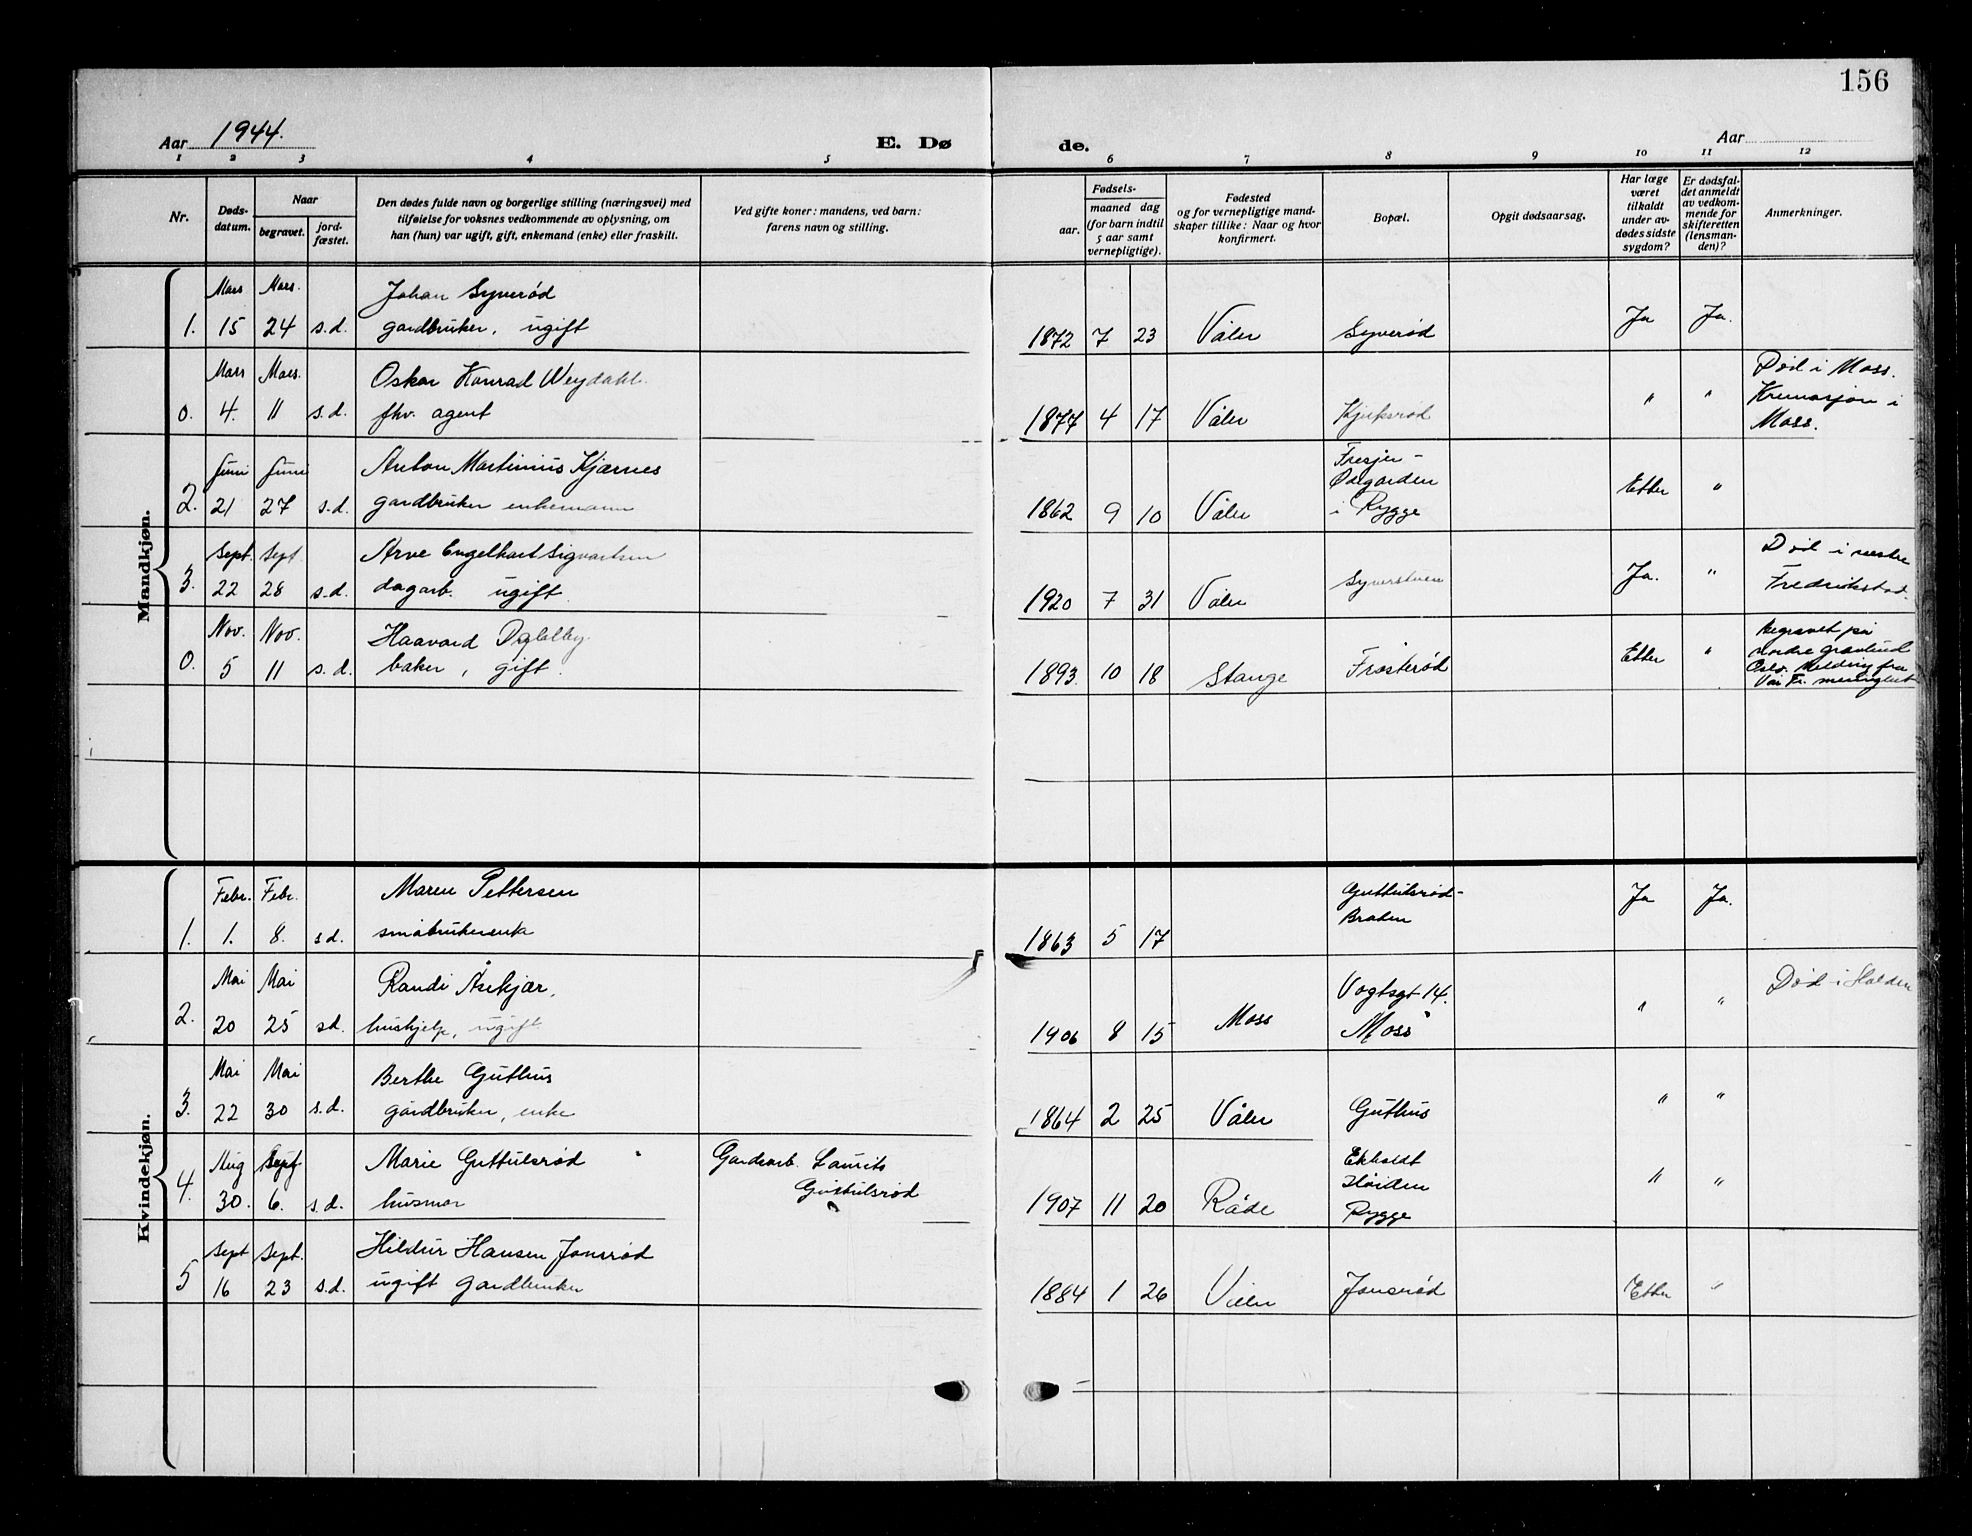 156
Aar 1944.
E. Døde.
Aar
1 2 3 4 5 6 7 8 9 10 11 12
Nr.
Døds-
datum.
Naar
begravet.
jord-
fæstet.
Den dødes fulde navn og borgerlige stilling (næringsvei) med
tilføielse for voksnes vedkommende av oplysning, om
han (hun) var ugift, gift, enkemand (enke) eller fraskilt.
Ved gifte koner: mandens, ved barn:
farens navn og stilling.
Fødsels-
aar.
maaned dag
(for barn indtil
5 aar samt
vernepligtige).
Fødested
og for vernepligtige mand-
skaper tillike: Naar og hvor
konfirmert.
Bopæl.
Opgit dødsaarsag.
Har læge
været
tilkaldt
under av-
dødes sidste
sygdom?
Er dødsfal-
det anmeldt
av vedkom-
mende for
skifteretten
(lensman-
den)?
Anmerkninger.
Mandkjøn.
Mars Mars. Johan Syverød
1. 15 24 s.d. gardbruker, ugift 1872 7 23 Våler Syverød Ja Ja.
Mars Mars. Oskar Konrad Weydahl. Død i Moss.
0. 4. 11 s.d. fhv. agent 1874 4 17 Våler " " Kremasjon i
Moss.
Juni Juni Anton Martinius Kjærnes
2. 21 27 s.d. gardbruker enkemann 1862 9 10 Våler i Rygge Etter "
Sept. Sept Arve Engelhart Sigvartsen Død i
3. 22 28 s.d. dagarb. ugift. 1920 7 31 Våler Syverstuen Ja. " Fredrikstad.
Nov. Nov. Haavard
0. 5 11 s.d. baker, gift. 1893. 10 18 Stange Frøsterød Etter "
Begravet på
Nordre gravlund
Oslo. Melding fra
Vår Fr. menighet
Kvindekjøn.
Febr. Febr. Maren Pettersen Guttulsrød-
1. 1. 8. s.d. småbrukerenke 1863 5 17 Braten Ja Ja.
Mai Mai Randi Åsekjær, Vogtsgt 14. Død i Halden
2. 20 25 s.d. hushjelp, ugift 1906 8 15 Moss Moss " "
Mai Mai Berthe Guthus
3. 22 30 s.d. gårdbruker, enke 1864 2 25 Våler Guthus " "
Aug Sept Marie Guttulsrød Gardsarb. Laurits Ekholdt
4. 30. 6. s.d. husmor Guttulsrød 1907 11 20 Råde Høiden " "
Rygge
Sept Sept. Hildur Hansen Jonsrød
5 16 23 s.d. ugift gardbruker 1884 1 26 Våler Jonsrød Etter "